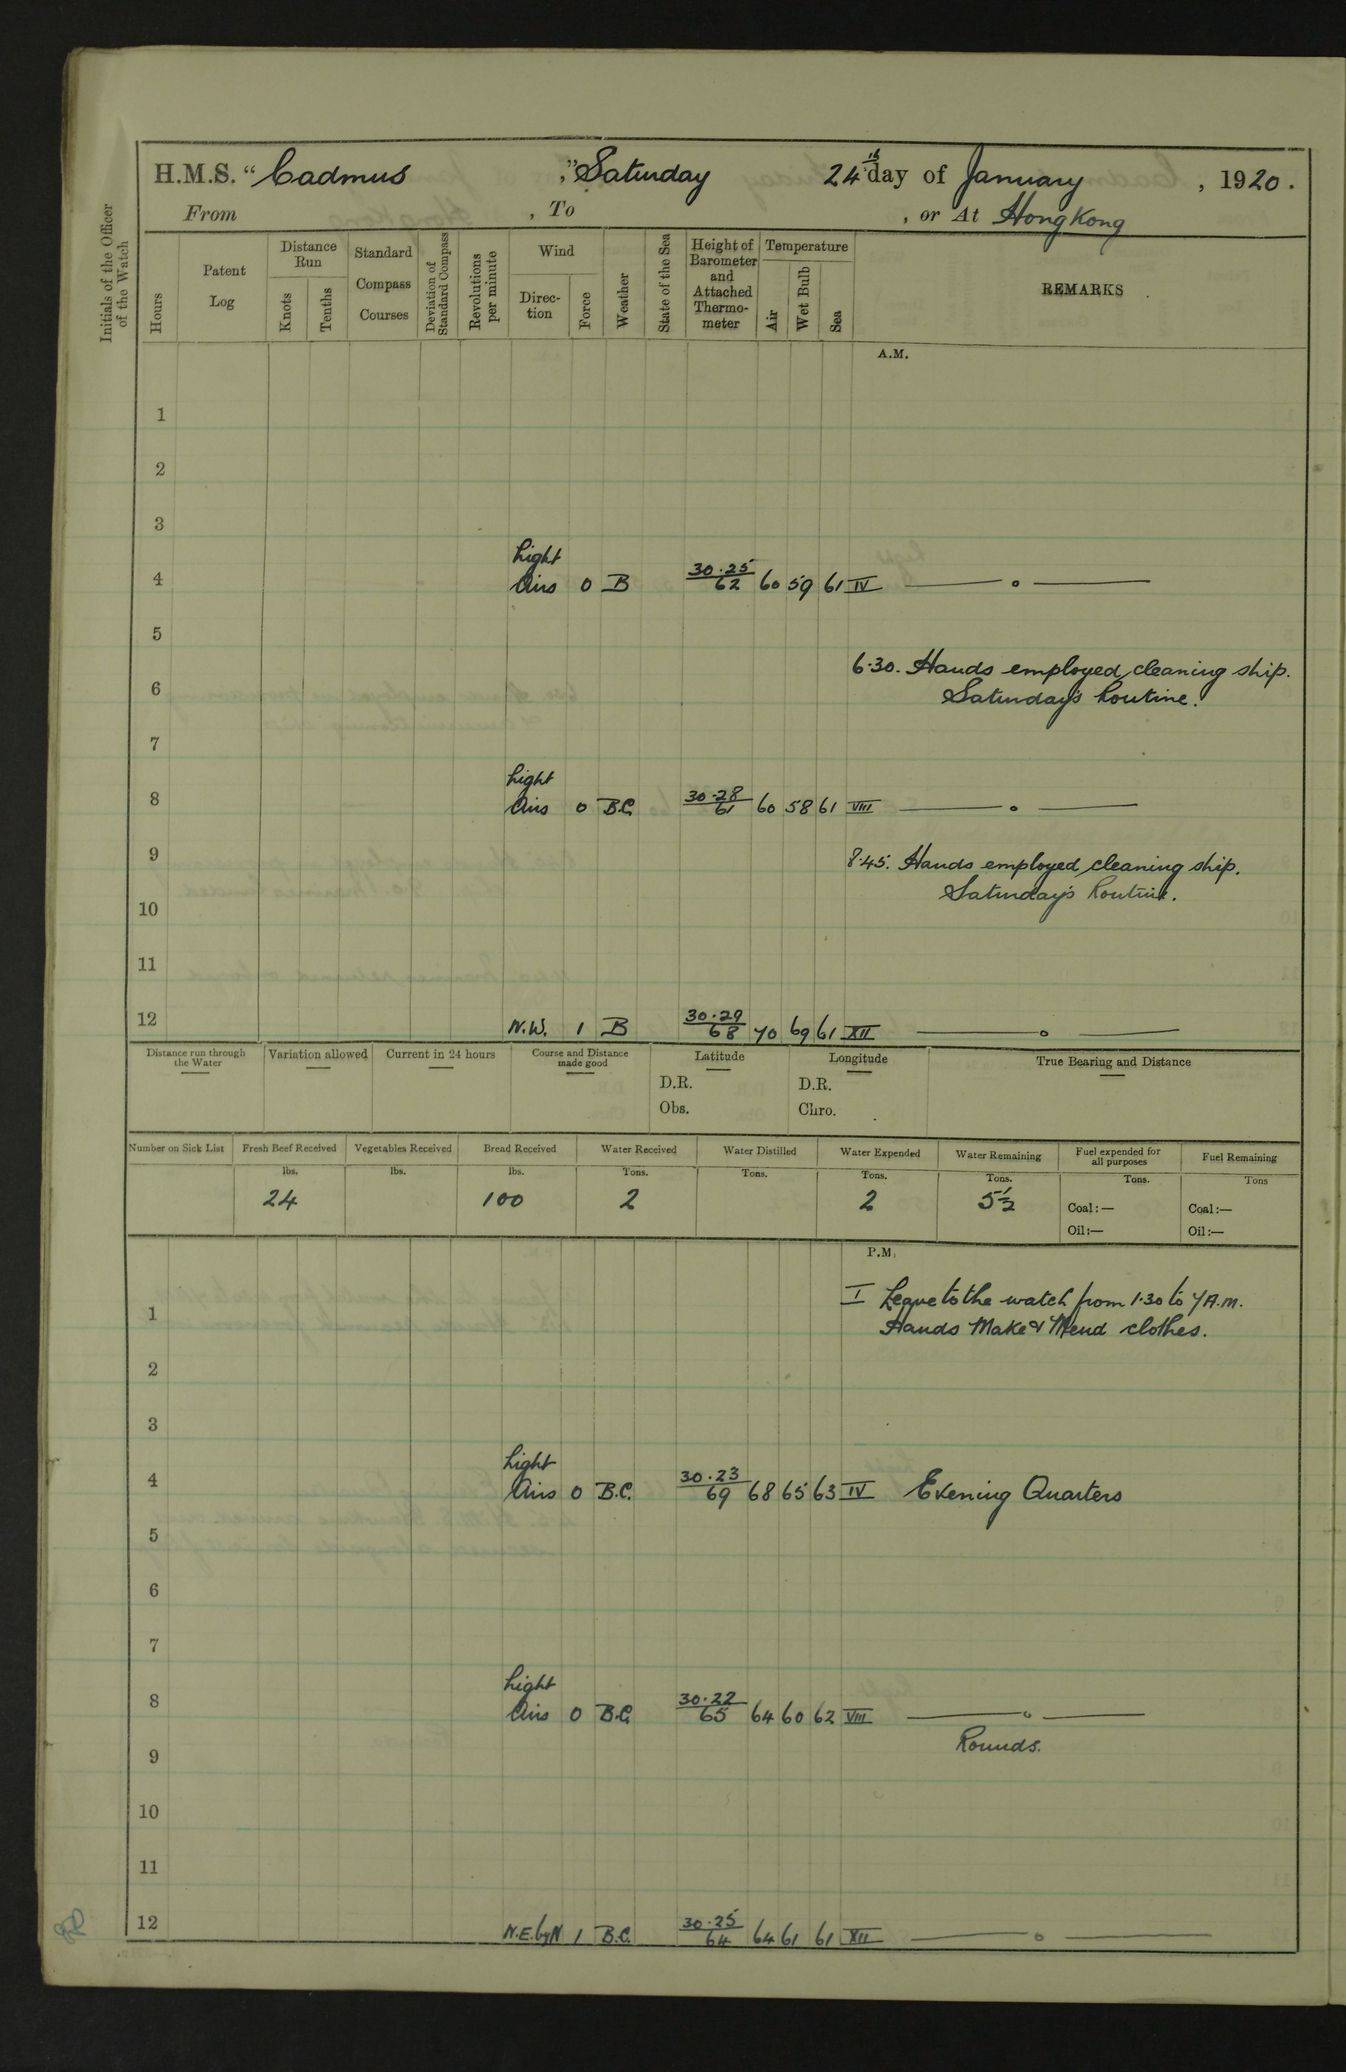 H.M.S. “Cadmus,” Saturday 24th day of January, 1920.
From , To , or At Hong Kong
Initials of the Officer of the Watch
Hours
Patent Log
Distance Run
Knots
Tenths
Standard Compass Courses
Deviation of Standard Compass
Revolutions per minute
Wind
Direc-tion
Force
Weather
State of the Sea
Height of Barometer and Attached Thermo-meter
Temperature
Air
Wet Bulb
Sea
REMARKS
A.M.
1
2
3
4 Light Airs 0 B 30.25 62 60 59 61 IV —— o ——
5
6 6.30. Hands employed cleaning ship.
Saturday's Routine.
7
8 Light Airs 0 B.C. 30.28 61 60 58 61 VIII —— o ——
9 8.45. Hands employed cleaning ship.
Saturday's Routine.
10
11
12 N.W. 1 B 30.29 68 70 69 61 XII —— o ——
Distance run through the Water
Variation allowed
Current in 24 hours
Course and Distance made good
Latitude
D.R.
Obs.
Longitude
D.R.
Chro.
True Bearing and Distance
Number on Sick List
Fresh Beef Received lbs. 24
Vegetables Received lbs.
Bread Received lbs. 100
Water Received Tons. 2
Water Distilled Tons.
Water Expended Tons. 2
Water Remaining Tons. 5½
Fuel expended for all purposes Tons.
Coal:—
Oil:—
Fuel Remaining Tons
Coal:—
Oil:—
P.M.
1 I Leave to the watch from 1.30 to 7 A.M.
Hands Make & Mend clothes.
2
3
4 Light Airs 0 B.C. 30.23 69 68 65 63 IV Evening Quarters
5
6
7
8 Light Airs 0 B.C. 30.22 65 64 60 62 VIII —— o ——
Rounds.
9
10
11
12 N.E. by N 1 B.C. 30.25 64 64 61 61 XII —— o ——